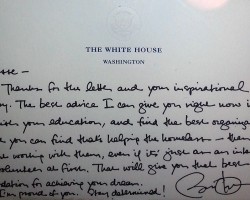 THE WHITE HOUSE
WASHINGTON
sse –
Thanks for the letter and your inspirational
ry. The best advice I can give you right now i
ith your education, and find the best organiza
e you can find that's helping the homeless – then
e working with them, even if it's just as an int
volunteer at first. That will give you that best
dation for achieving your dream.
I'm proud of you. Stay determined!